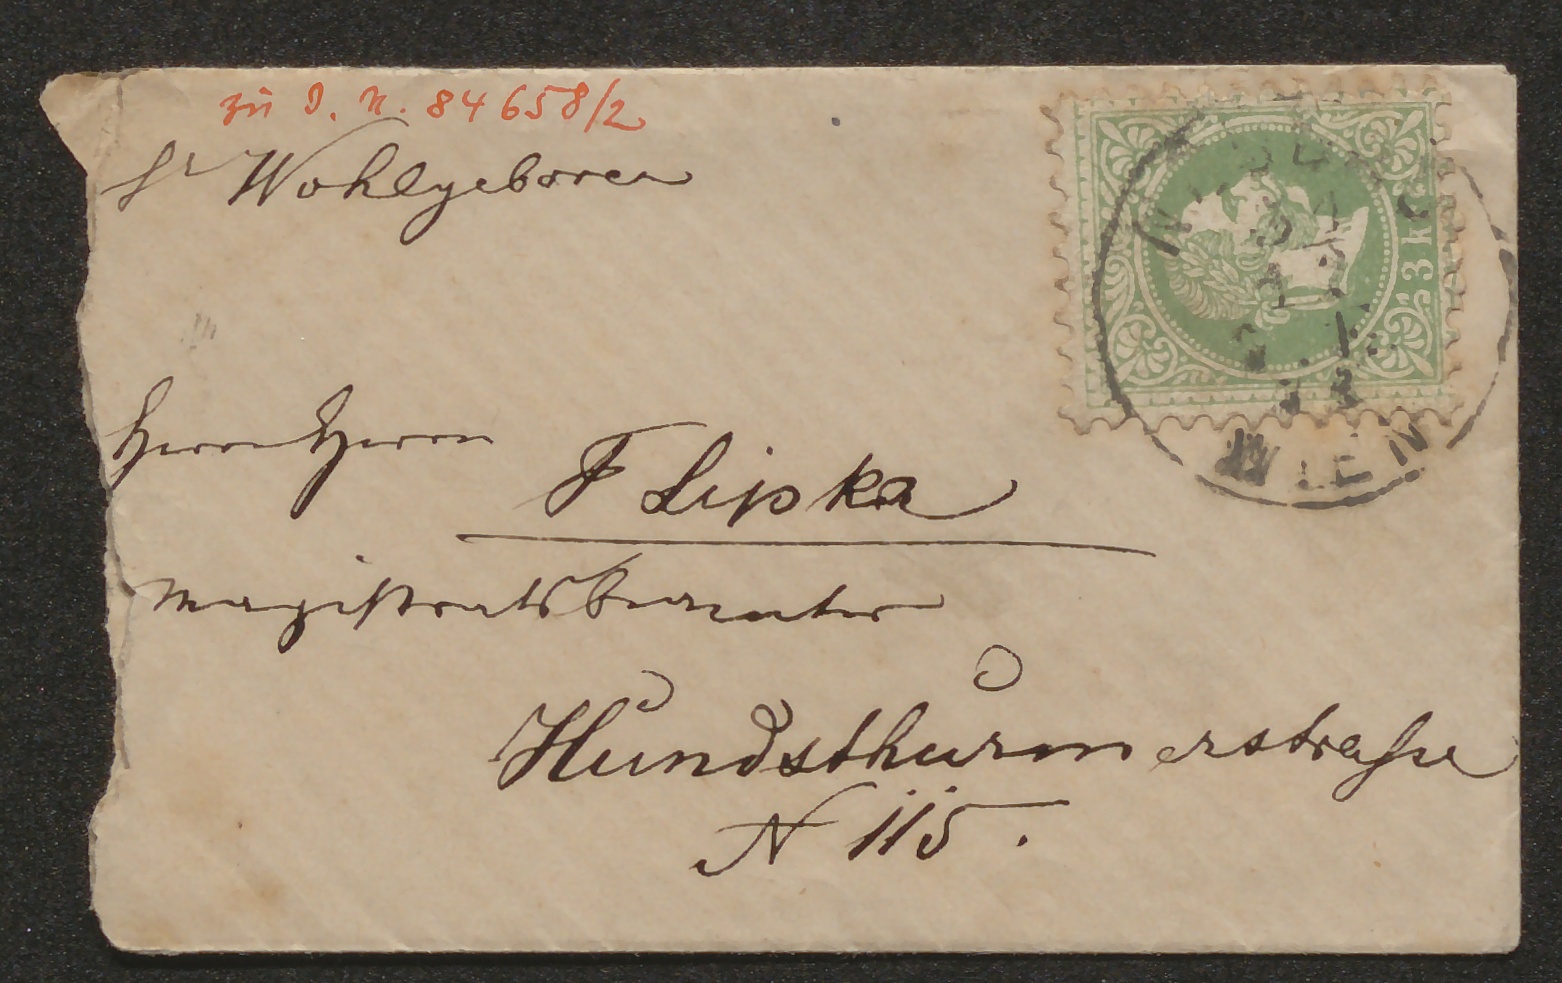 zu I. N. 84658/2
Sr Wohlgeboren
3 Kr
Herrn Herrn
F Lipka
Magistratsbeamter
Hundsthurmerstraße
N 115.
WIEN